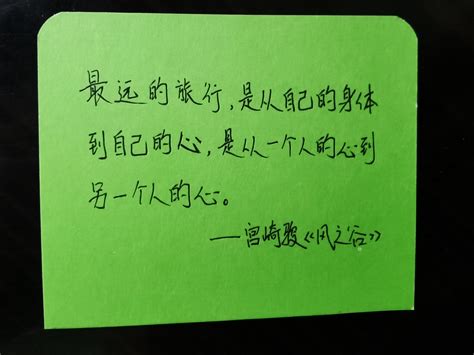 最远的旅行，是从自己的身体
到自己的心，是从一个人的心到
另一个人的心。
——宫崎骏《风之谷》